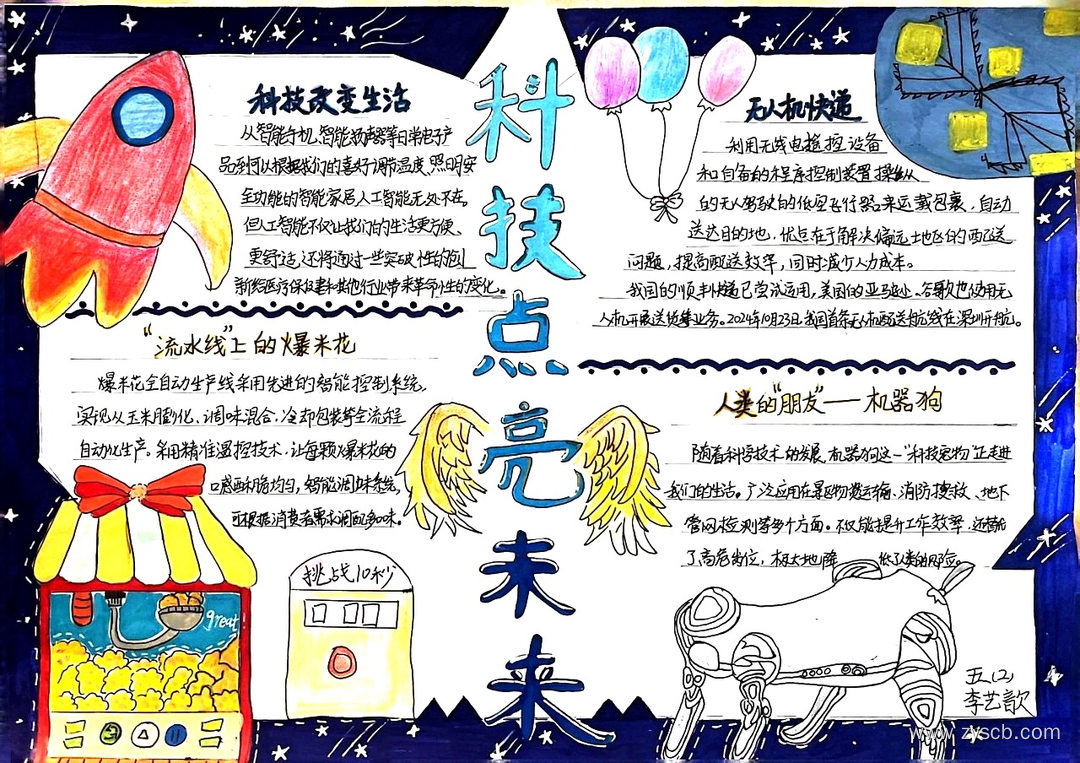 科技点亮未来
科技改变生活
从智能手机、智能扬声器等日常电子产
品到可以根据我们的喜好调节温度、照明安
全功能的智能家居人工智能无处不在。
但人工智能不仅让我们的生活更方便、
更舒适,还将通过一些突破性的创
新给医疗保健和其他行业带来革命性的变化。
无人机快递
利用无线电摇控设备
和自备的程序控制装置操纵
的无人驾驶的低空飞行器来运载包裹,自动
送达目的地,优点在于解决偏远地区的配送
问题,提高配送效率,同时减少人力成本。
我国的顺丰快递已尝试运用,美国的亚马逊、谷歌也使用无
人机开展送货业务。2024年10月23日我国首条无人机配送航线在深圳开航。
“流水线”上的爆米花
爆米花全自动生产线采用先进的智能控制系统,
实现从玉米膨化、调味混合、冷却包装等全流程
自动化生产。采用精准温控技术,让每颗爆米花的
口感酥脆均匀,智能调味系统,
可根据消费者需求调配多口味。
人类的“朋友”——机器狗
随着科学技术的发展,机器狗这一“科技宠物”正走进
我们的生活。广泛应用在景区物资运输、消防搜救、地下
管网检测等多个方面。不仅能提升工作效率,还
了高危岗位,极大地降 低了人类的风险。
great
挑战10秒
五(2)
李艺歆
www.zyscb.com